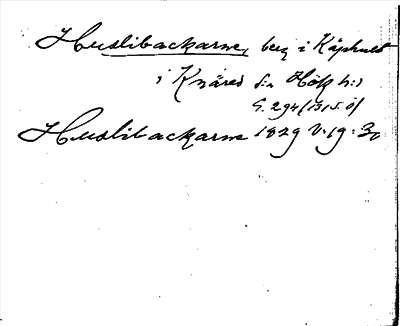 Huslibackarne, berg i Kåphult
i Knäred s:n Höks h:d
G. 294 (1315.Ö)
Huslibackarne 1829 V:19:30